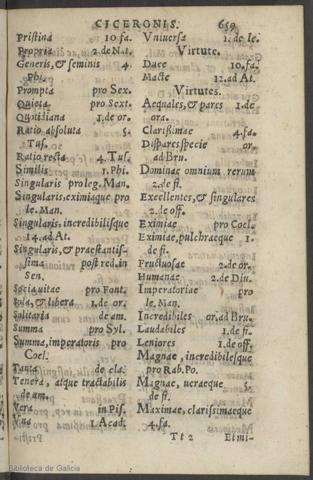 CICERONIS. 659
Pristina 10.fa.
Propria 2.de Nat.
Generis, & seminis 4.
Phi.
Prompta pro Sex.
Quieta pro Sext.
Quotidiana 1.de or.
Ratio absoluta 5.
Tus.
Ratio recta 4. Tus.
Similis 1. Phi.
Singularis pro leg. Man.
Singularis, eximiaque pro
le. Man.
Singularis, incredibilisque
14. ad At.
Singularis, & præstantis-
sima post red. in
Sen.
Socia vitae pro Font.
Sola, & libera 1. de or.
Solitaria de am.
Summa pro Syl.
Summa, imperatoris pro
Coel.
Tanta de cla.
Tenera, atque tractabilis
de am.
Vera in Pis.
Vna 1. Acad.
Vniuersa 1. de le.
Virtute.
Duce 10. fa.
Macte 12. ad At.
Virtutes.
Aequales, & pares 1. de
ora.
Clarissimae 4. fa.
Dispares specie or.
ad Bru.
Dominae omnium rerum
2. de fi.
Excellentes, & singulares
2. de off.
Eximiae pro Coel.
Eximiae, pulchraeque 1.
de fi.
Fructuosae 2. de or.
Humanae 2. de Diu.
Imperatoriae pro
le. Man.
Incredibiles or. ad Bru.
Laudabiles 1. de fi.
Leniores 1. de off.
Magnae, incredibilesque
pro Rab. Po.
Magnae, ueraeque 5.
de fi.
Maximae, clarissimaeque
4. fa.
Tt 2 Eimi-
Biblioteca de Galicia